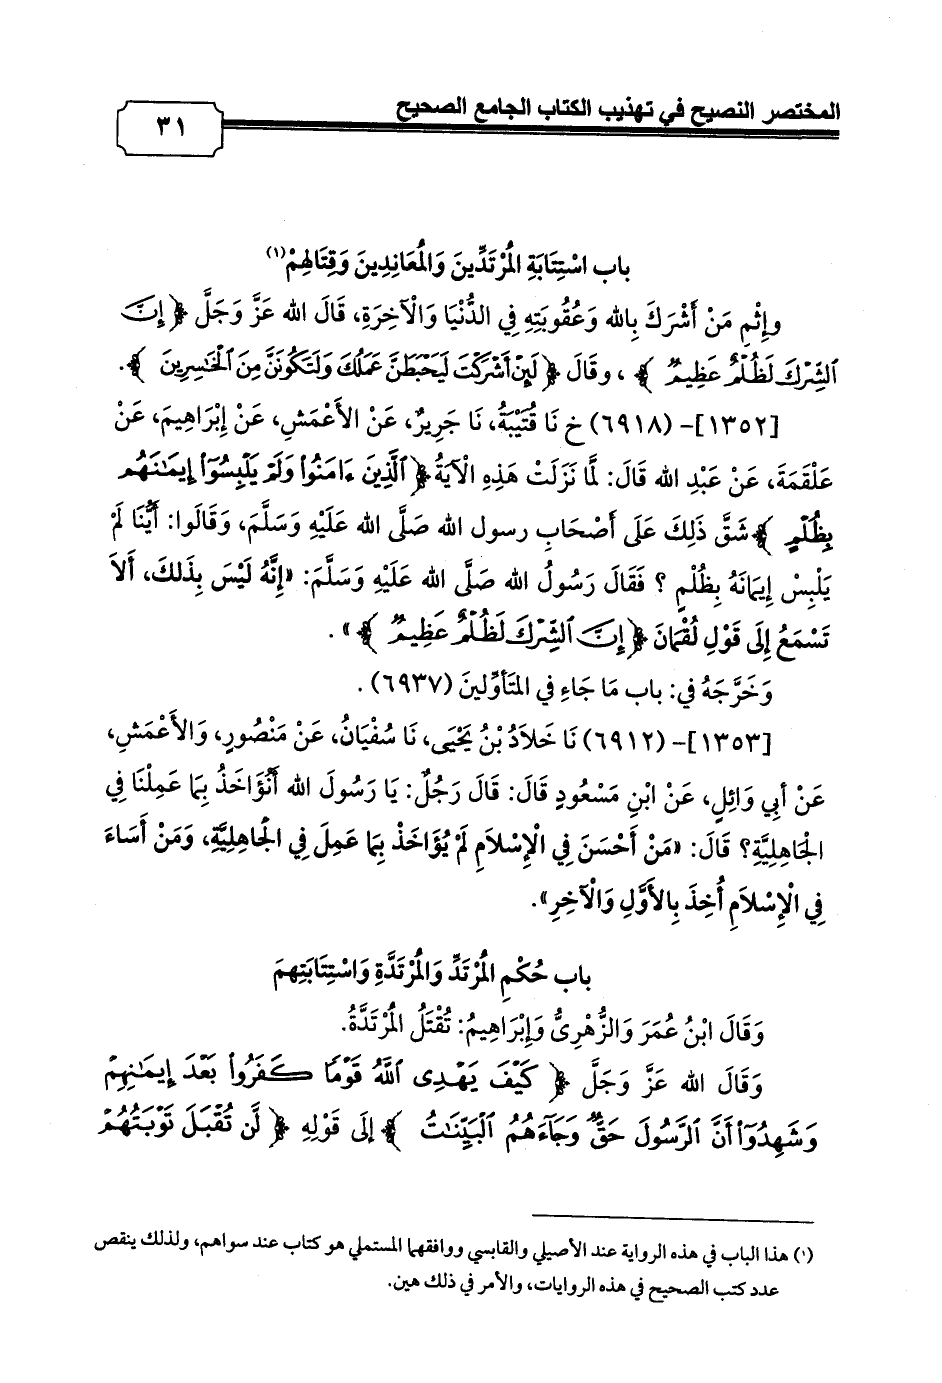 المختصر النصيح في تهذيب الكتاب الجامع الصحيح
٣١
باب اسْتِتَابَةِ المُرْتَدِّينَ وَالْمُعَانِدِينَ وَقِتَالِهِمْ(١)
وإِثْمِ مَنْ أَشْرَكَ بِالله وَعُقُوبَتِهِ فِي الدُّنْيَا وَالْآخِرَةِ، قَالَ الله عَزَّ وَجَلَّ ﴿ إِنَّ
ٱلشِّرْكَ لَظُلْمٌ عَظِيمٌ ﴾ ، وقَالَ ﴿ لَئِنْ أَشْرَكْتَ لَيَحْبَطَنَّ عَمَلُكَ وَلَتَكُونَنَّ مِنَ ٱلْخَٰسِرِينَ ﴾.
[١٣٥٢]- (٦٩١٨) خ نَا قُتَيْبَةُ، نَا جَرِيرٌ، عَنْ الأَعْمَشِ، عَنْ إِبْرَاهِيمَ، عَنْ
عَلْقَمَةَ، عَنْ عَبْدِ الله قَالَ: لَمَّا نَزَلَتْ هَذِهِ الْآيَةُ ﴿ ٱلَّذِينَ ءَامَنُوا۟ وَلَمْ يَلْبِسُوٓا۟ إِيمَٰنَهُم
بِظُلْمٍ ﴾ شَقَّ ذَلِكَ عَلَى أَصْحَابِ رسول الله صَلَّى الله عَلَيْهِ وَسَلَّمَ، وَقَالُوا: أَيُّنَا لَمْ
يَلْبِسْ إِيمَانَهُ بِظُلْمٍ ؟ فَقَالَ رَسُولُ الله صَلَّى الله عَلَيْهِ وَسَلَّمَ: «إِنَّهُ لَيْسَ بِذَلكَ، أَلاَ
تَسْمَعُ إِلَى قَوْلِ لُقْمَانَ ﴿ إِنَّ ٱلشِّرْكَ لَظُلْمٌ عَظِيمٌ ﴾» .
وَخَرَّجَهُ في: باب مَا جَاءِ في المُتَأوِّلينَ (٦٩٣٧) .
[١٣٥٣]- (٦٩١٢) نَا خَلاَدُ بْنُ يَحْيَى، نَا سُفْيَانُ، عَنْ مَنْصُورٍ، وَالأَعْمَشِ،
عَنْ أبِي وَائِلٍ، عَنْ ابْنِ مَسْعُودٍ قَالَ: قَالَ رَجُلٌ: يَا رَسُولَ الله أَنُؤَاخَذُ بِمَا عَمِلْنَا فِي
الْجَاهِلِيَّةِ؟ قَالَ: «مَنْ أَحْسَنَ فِي الْإِسْلاَمِ لَمْ يُؤَاخَذْ بِمَا عَمِلَ فِي الْجَاهِلِيَّةِ، وَمَنْ أَسَاءَ
فِي الْإِسْلاَمِ أُخِذَ بِالأَوَّلِ وَالْآخِرِ».
باب حُكْمِ المُرْتَدِّ وَالْمُرْتَدَّةِ وَاسْتِتَابَتِهِمَ
وَقَالَ ابْنُ عُمَرَ وَالزُّهْرِيُّ وَإِبْرَاهِيمُ: تُقْتَلُ المُرْتَدَّةُ.
وَقَالَ الله عَزَّ وَجَلَّ ﴿ كَيْفَ يَهْدِى ٱللَّهُ قَوْمًا كَفَرُوا۟ بَعْدَ إِيمَٰنِهِمْ
وَشَهِدُوٓا۟ أَنَّ ٱلرَّسُولَ حَقٌّ وَجَآءَهُمُ ٱلْبَيِّنَٰتُ ﴾ إلَى قَوْلِهِ ﴿ لَّن تُقْبَلَ تَوْبَتُهُمْ
(١) هذا الباب في هذه الرواية عند الأصيلي والقابسي ووافقهما المستملي هو كتاب عند سواهم، ولذلك ينقص
عدد كتب الصحيح في هذه الروايات، والأمر في ذلك هين.